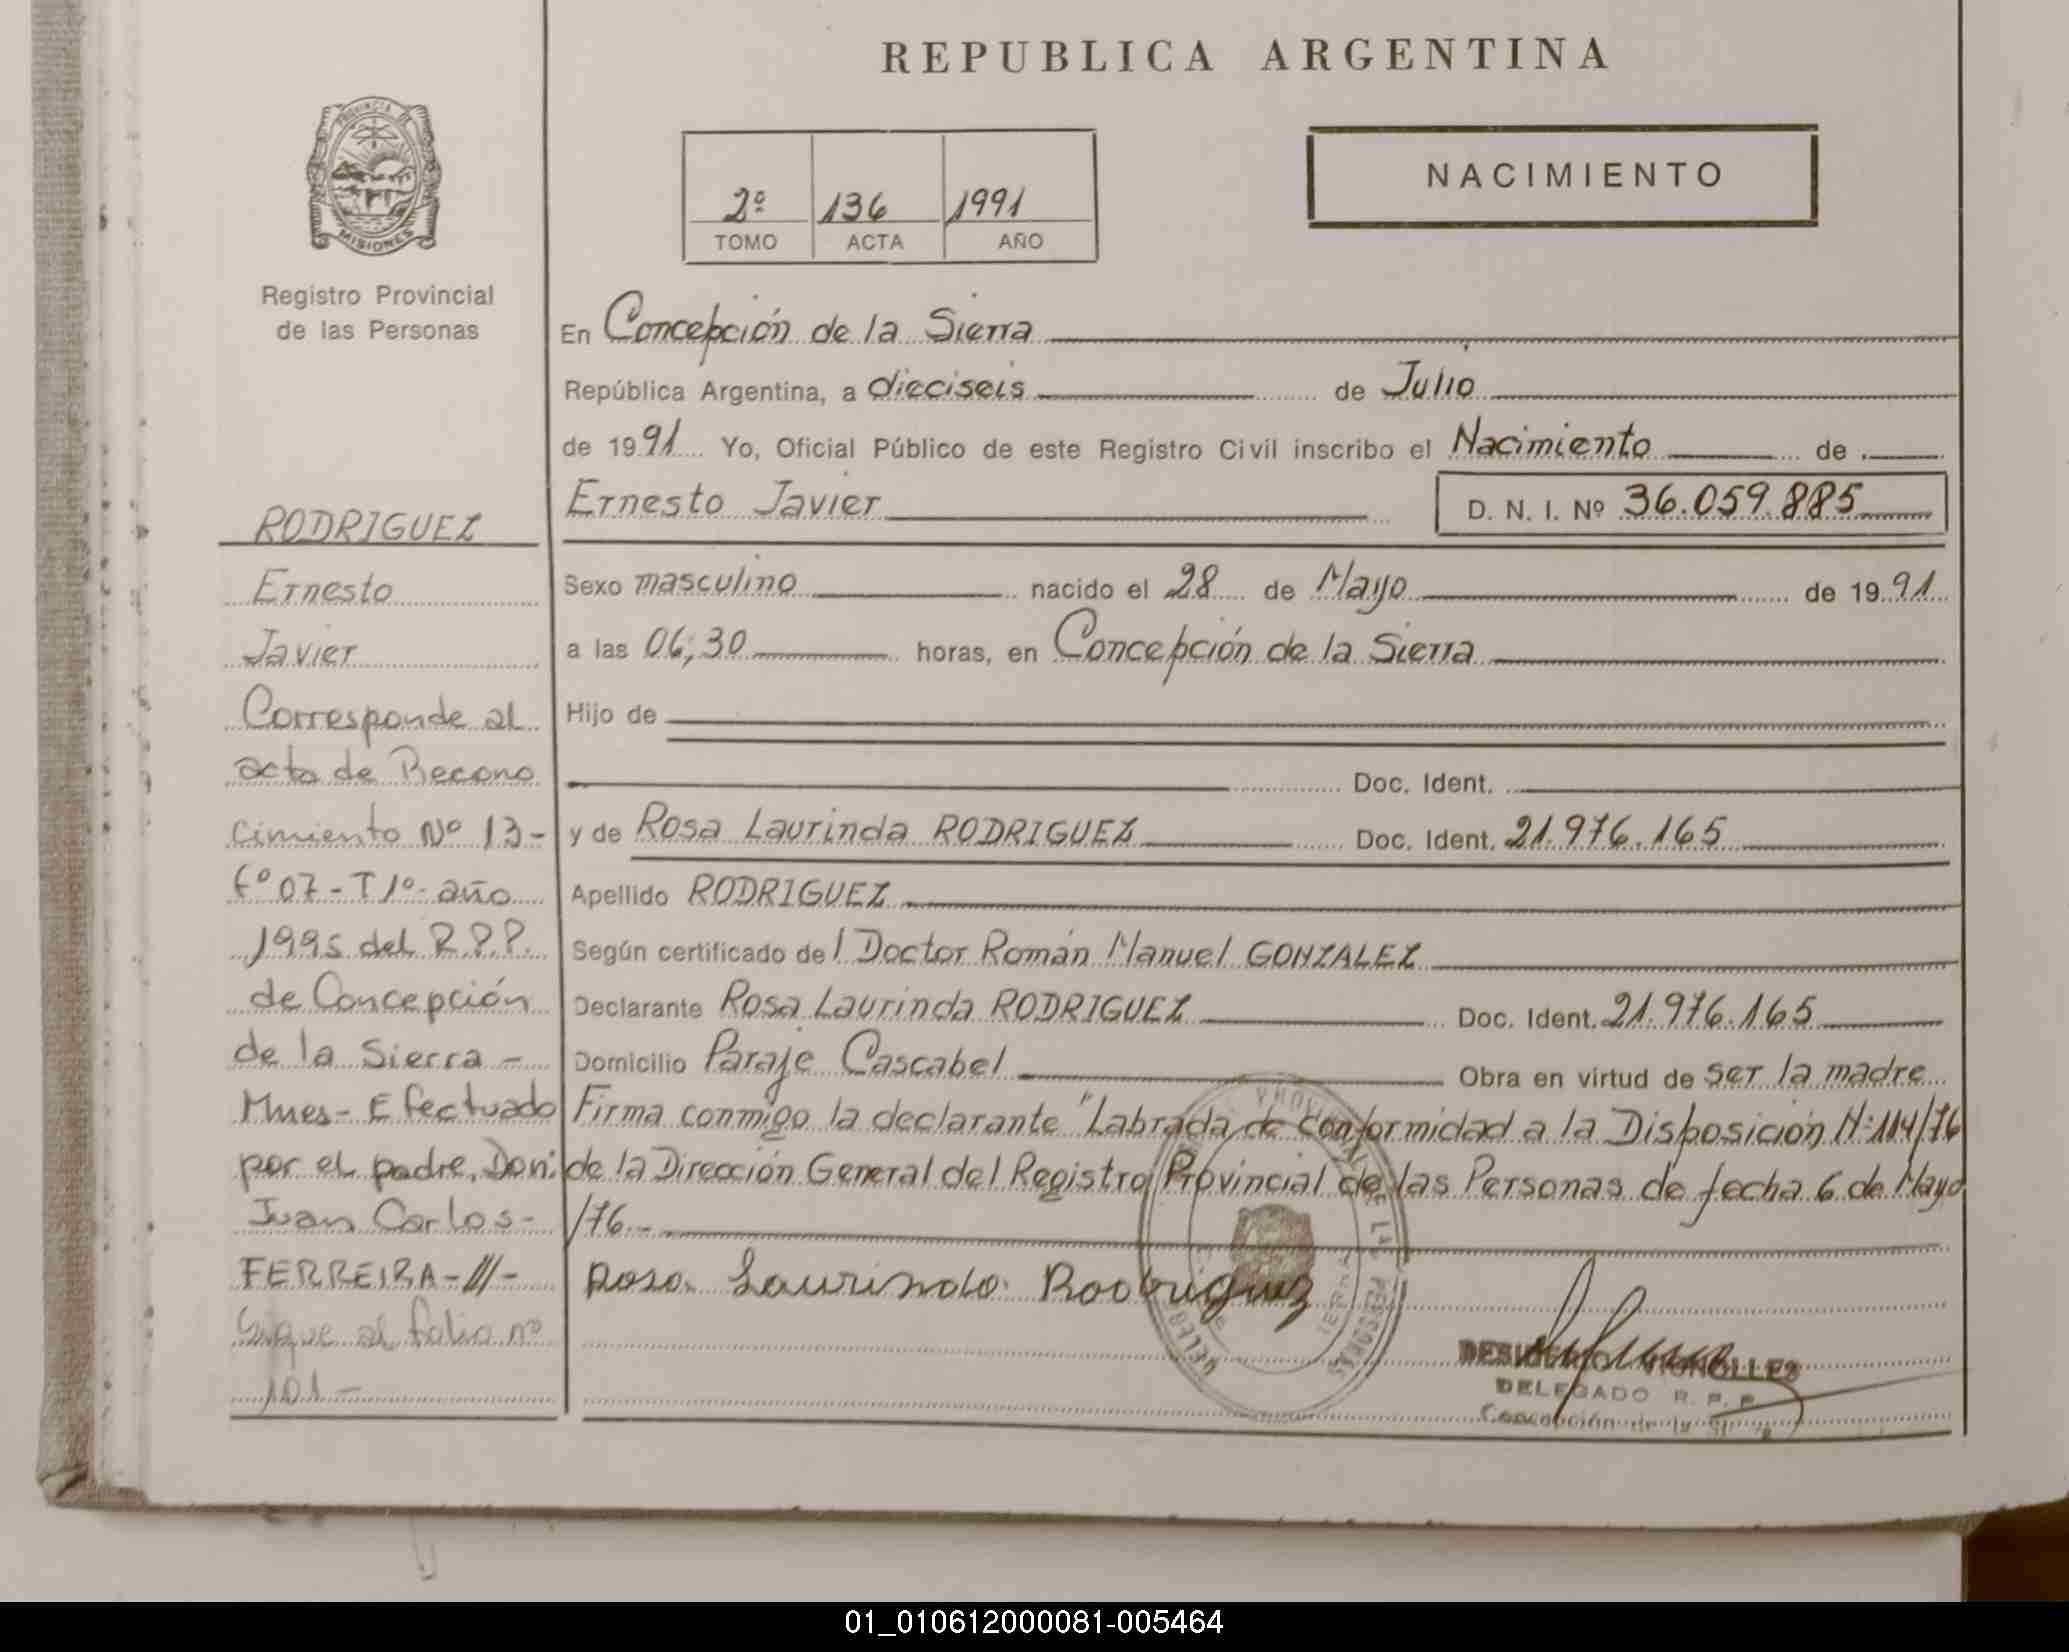 REPUBLICA ARGENTINA
PROVINCIA DE
MISIONES
Registro Provincial
de las Personas
2º 136 1991
TOMO ACTA AÑO
NACIMIENTO
En Concepción de la Sierra
República Argentina, a dieciseis de Julio
de 1991 Yo, Oficial Público de este Registro Civil inscribo el Nacimiento de
Ernesto Javier D. N. I. Nº 36.059.885
Sexo masculino nacido el 28 de Mayo de 1991
a las 06,30 horas, en Concepción de la Sierra
Hijo de
Doc. Ident.
y de Rosa Laurinda RODRIGUEZ Doc. Ident. 21.976.165
Apellido RODRIGUEZ
Según certificado del Doctor Román Manuel GONZALEZ
Declarante Rosa Laurinda RODRIGUEZ Doc. Ident. 21.976.165
Domicilio Paraje Cascabel Obra en virtud de ser la madre
Firma conmigo la declarante "Labrada de conformidad a la Disposición N:114/76
de la Dirección General del Registro Provincial de las Personas de fecha 6 de Mayo
/76.-
Rosa Laurindo Rodriguez
DELEGADO R. P. P.
Concepción de la
RODRIGUEZ
Ernesto
Javier
Corresponde al
acta de Recono
cimiento Nº 13-
Fº 07-T1º-año
1995 del R.P.P.
de Concepción
de la Sierra-
Mnes- Efectuado
por el padre, Don:
Juan Carlos-
FERREIRA-///-
Sigue al folio nº
101-
01_010612000081-005464